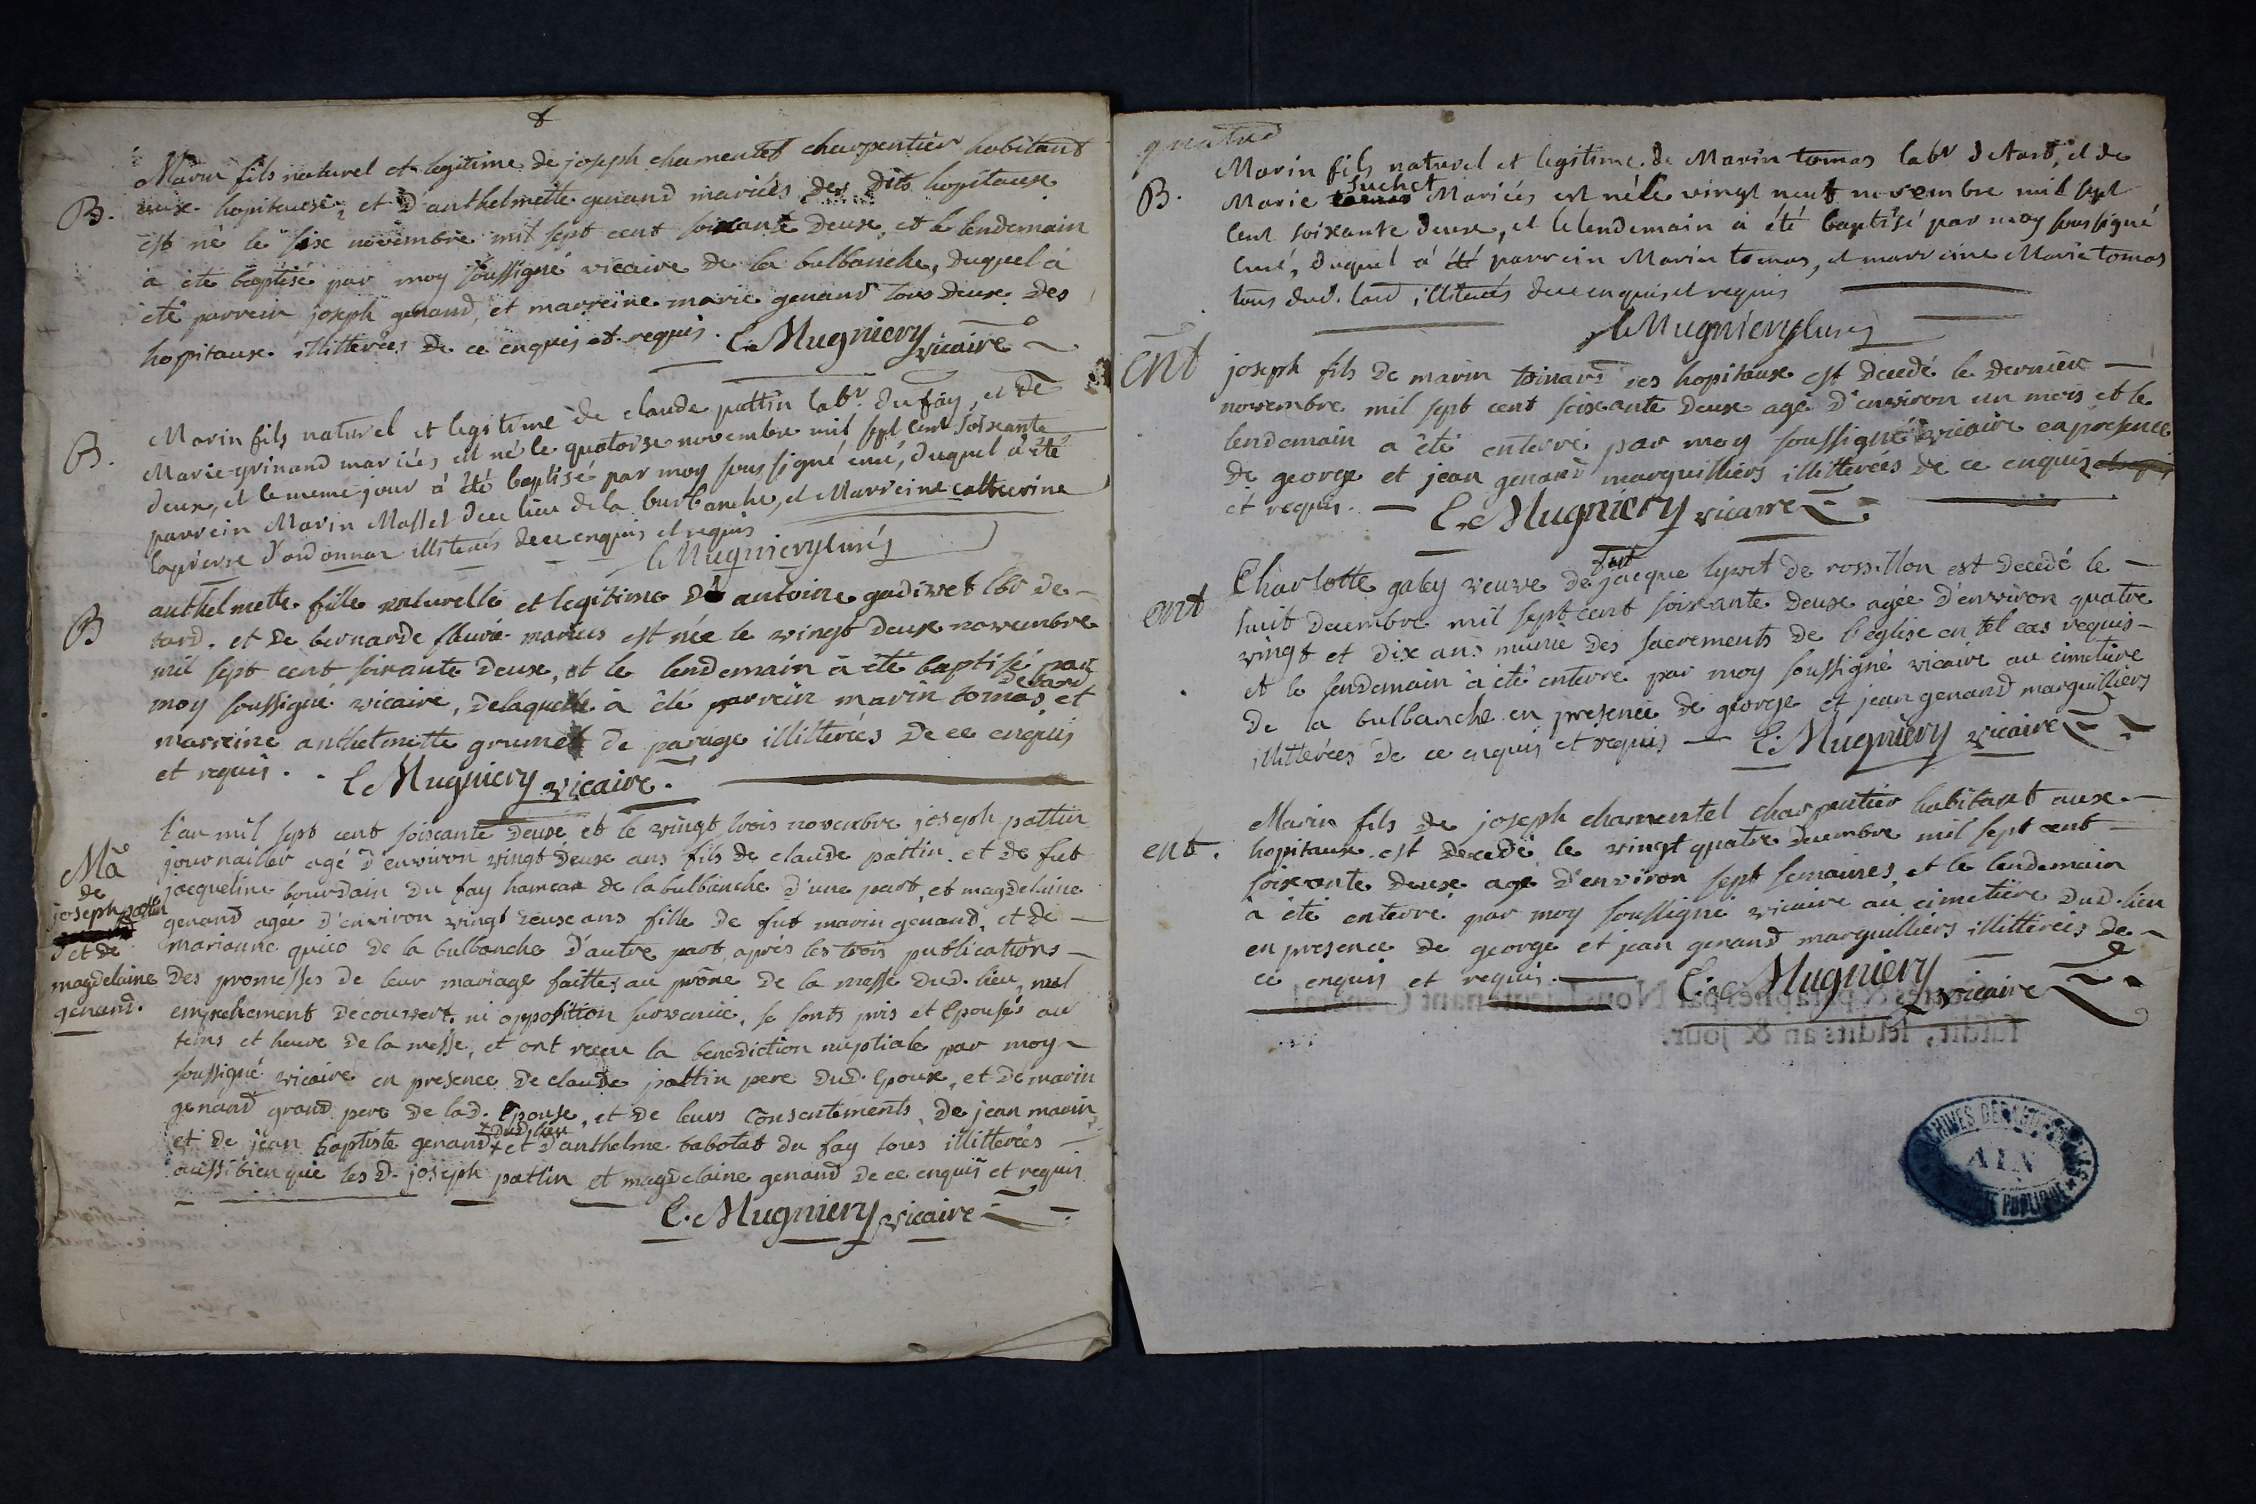 Marin fils naturel et legitime de joseph chamentel charpentier habitant
B. aux hopiteaux, et d'anthelmette genand mariés des dits hopiteaux
est né le six novembre mil sept cent soixante deux, et le lendemain
à été baptisé par moy soussigné vicaire de la bulbanche, duquel à
été parrein joseph genand, et marreine marie genand tous deux des
hopitaux illitterées de ce enquis et requis. C. Mugniery vicaire
B. Marin fils naturel et legitime de claude pattin labr. du fay, et de
Marie grinand mariés est né le quatorze novembre mil sept cent soixante
deux, et le meme jour à été baptisé par moy soussigné curé, duquel à été
parrein Marin Massel du lieu de la burbanche, et Marreine catherine
d'ordonnar illiterés de ce enquis et requis
Mugniery curé
B anthelmette fille naturelle et legitime d' antoine gadivet lbr de
tard. et de bernarde fleurie mariés est née le vingt deux novembre
mil sept cent soixante deux, et le lendemain à été baptisé par
moy soussigné vicaire, delaquelle à été parrein marin tomas de tard et
marreine anthelmette grumet de parage illitterées de ce enquis
et requis. C. Mugniery vicaire.
Mã de joseph pattin et de magdelaine genand.
l'an mil sept cent soixante deux et le vingt trois novembre joseph pattin
journailler agé d'environ vingt deux ans fils de claude pattin et de fut
jacqueline bourdain du fay hameau de la bulbanche d'une part, et magdelaine
genand agée d'environ vingt deux ans fille de fut marin genand, et de
marianne de la bulbanche d'autre part, après les trois publications
des promesses de leur mariage faittes au prône de la messe dud. lieu, nul
empechement découvert ni opposition survenue, se sonts pris et épousés au
tems et heure de la messe, et ont receu la benediction nuptiale par moy
soussigné vicaire en presence de claude pattin pere dud. epoux, et de marin
genand grand pere de lad. Epouse, et de leurs consentements, de jean marin
et de jean baptiste genand + dud. lieu et d'anthelme babolat du fay tous illitterées
aussi bien que les d. joseph pattin et magdelaine genand de ce enquis et requis
C. Mugniery vicaire
quatre
B. Marin fils naturel et legitime de Marin tomas labr de tard, et de
Marie Suchet Mariés est né le vingt neuf novembre mil sept
cent soixante deux, et le lendemain à été baptisé par moy soussigné
curé, duquel à été parrein Marin tomas, et marreine Marie tomas
tous dud. tard illiterés de ce enquis et requis
Mugniery curé
ent joseph fils de marin des hopitaux est decedé le dernier
novembre mil sept cent soixante deux agé d'environ un mois et le
lendemain a été enterré par moy soussigné vicaire en presence
de george et jean genand marguilliers illitterées de ce enquis
et requis. C. Mugniery vicaire
ent Charlotte galey veuve de fut jacque lyvet de rossillon est decedé le
huit decembre mil sept cent soixante deux agée d'environ quatre
vingt et dix ans munie des sacrements de l'église en tel cas requis
et le lendemain à été enterré par moy soussigné vicaire au cimetière
de la bulbanche en presence de george et jean genand marguilliers
illitterées de ce enquis et requis C. Mugniery vicaire
ent. Marin fils de joseph chamentel charpentier habitant aux
hopitaux est decedé le vingt quatre decembre mil sept cent
soixante deux agé d'environ sept semaines, et le lendemain
à été enterré par moy soussigné vicaire au cimetière dud. lieu
en presence de george et jean genand marguilliers illitterées de
ce enquis et requis. C. Mugniery vicaire
ARCHIVES DEPARTEMENTALES
AIN
PUBLIQUE